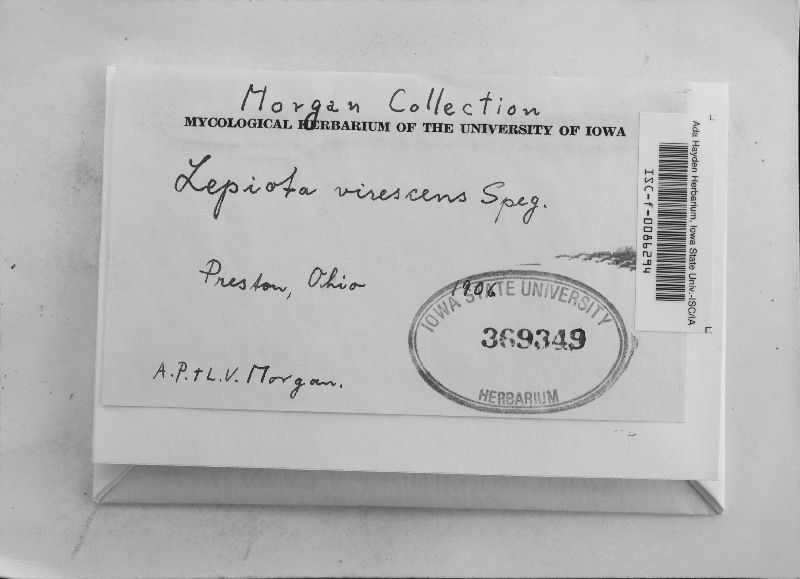 Morgan Collection
MYCOLOGICAL HERBARIUM OF THE UNIVERSITY OF IOWA
Lepiota virescens Speg.
Preston, Ohio
1906
IOWA STATE UNIVERSITY
369349
HERBARIUM
A.P. + L.V. Morgan.
Ada Hayden Herbarium, Iowa State Univ.-ISC/IA
ISC-f-0086294